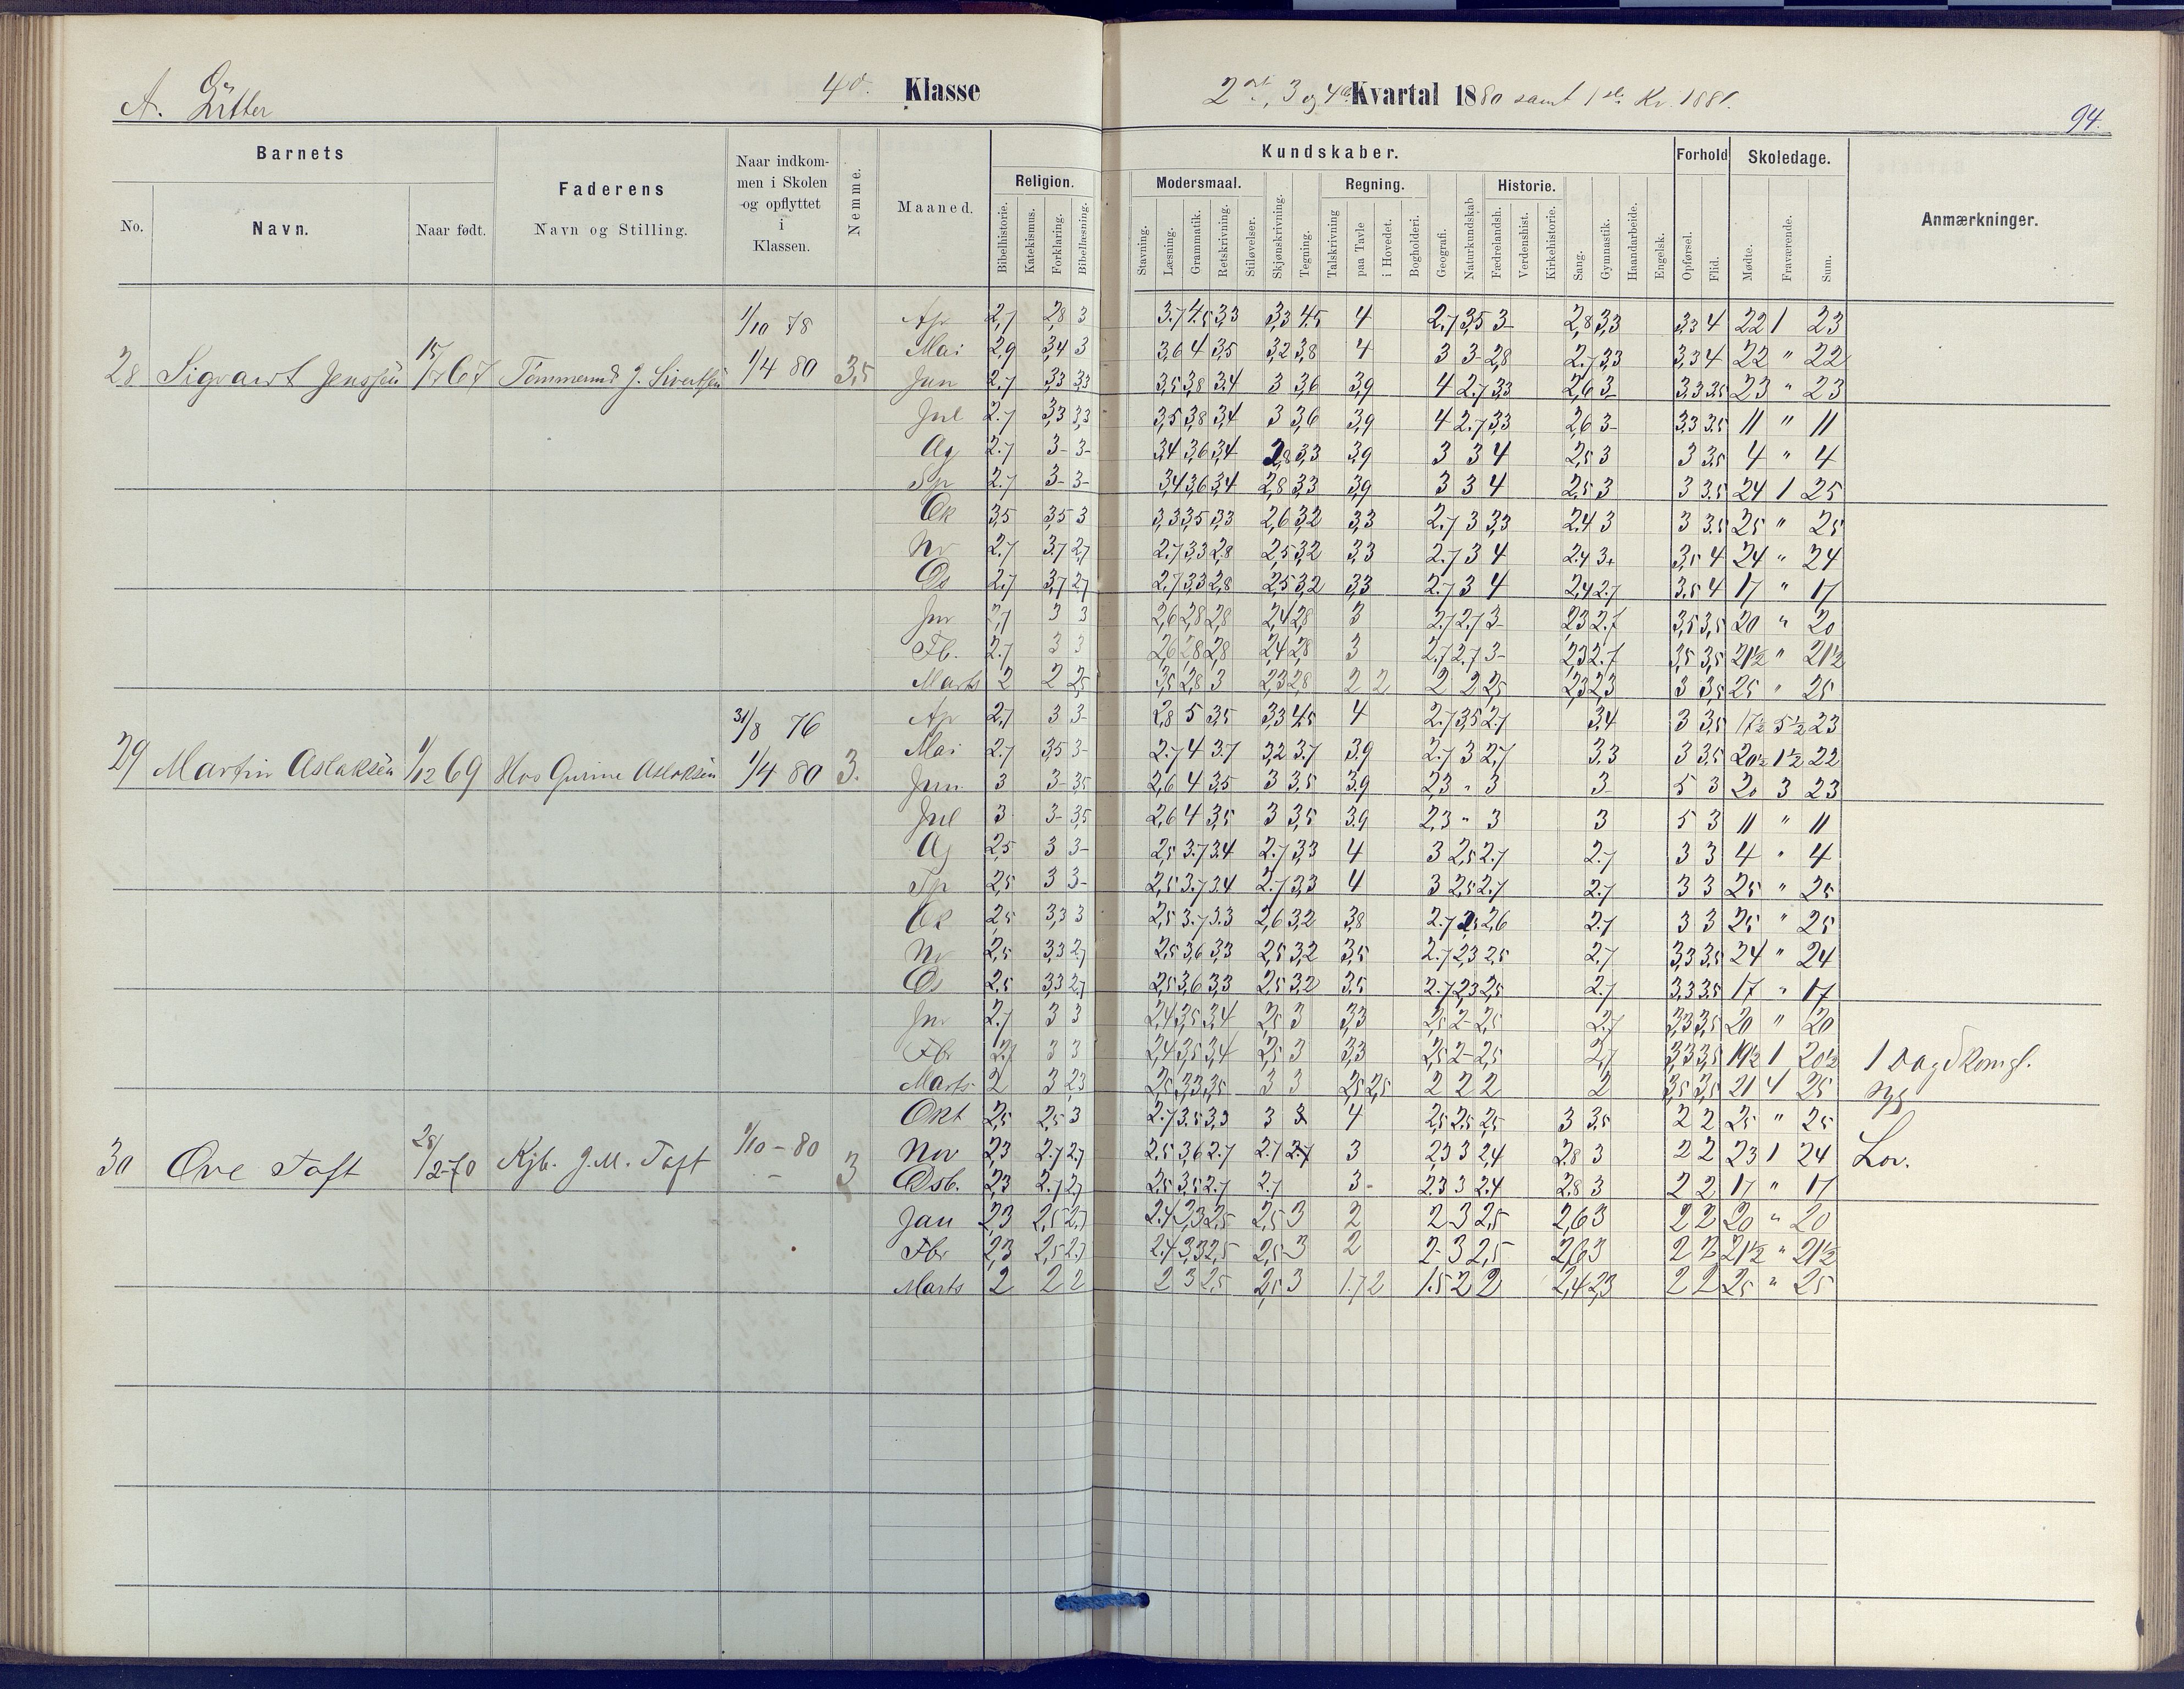 A. Gutter 4de Klasse 2det, 3 og 4de Kvartal 1880 samt 1ste Kv. 1881.
94.
Barnets Kundskaber. Forhold Skoledage.
No. Navn. Naar født. Faderens Navn og Stilling. Naar indkommen i Skolen og opflyttet i Klassen. Nemme. Maaned. Religion. Modersmaal. Regning. Historie. Anmærkninger.
Bibelhistorie. Katekismus. Forklaring. Bibellæsning. Stavning. Læsning. Grammatik. Retskrivning. Stiløvelser. Skjønskrivning. Tegning. Talskrivning paa Tavle i Hovedet. Bogholderi. Geografi. Naturkundskab Fædrelandsh. Verdenshist. Kirkehistorie. Sang. Gymnastik. Haandarbeide. Engelsk. Opførsel. Flid. Mødte. Fraværende. Sum.
1/10 78 Apr 2,7 2,8 3 3.7 4.5 3,3 3,3 4.5 4 2.7 3,5 3- 2,8 3,3 3,3 4 22 1 23
Mai 2,9 3,4 3 3,6 4 3,5 3,2 3,8 4 3 3- 2,8 2.7 3,3 3,3 4 22 " 22
28 Sigvart Jenssen 15/7 67 Tømmermd J. Sivertsen 1/4 80 3,5 Jun 2.7 3,3 3,3 3,5 3,8 3.4 3 3,6 3,9 4 2.7 3,3 2,6 3- 3,3 3.5 23 " 23
Jul 2.7 3,3 3,3 3,5 3,8 3,4 3 3,6 3,9 4 2.7 3,3 2,6 3- 3,3 3.5 11 " 11
Ag 2.7 3- 3- 3,4 3,6 3,4 2,8 3,3 3,9 3 3 4 2,5 3 3 3.5 4 " 4
Sp 2.7 3- 3- 3,4 3,6 3,4 2,8 3,3 3,9 3 3 4 2,5 3 3 3.5 24 1 25
Ok 3,5 3,5 3 3,3 3,5 3,3 2,6 3,2 3,3 2.7 3 3,3 2.4 3 3 3.5 25 " 25
Nv 2.7 3.7 2,7 2.7 3,3 2.8 2,5 3,2 3,3 2.7 3 4 2.4 3+ 3,5 4 24 " 24
Ds 2.7 3,7 2,7 2.7 3,3 2,8 2,5 3,2 3,3 2.7 3 4 2,4 2.7 3.5 4 17 " 17
Jnr 2,7 3 3 2,6 2,8 2,8 2,4 2,8 3 2.7 2.7 3- 2,3 2.7 3,5 3,5 20 " 20
Fb. 2.7 3 3 2,6 2,8 2,8 2,4 2,8 3 2.7 2.7 3- 2,3 2.7 3,5 3,5 21½ " 21½
Marts 2 2 2,5 3,5 2,8 3 2,3 2,8 2 2 2 2 2,5 2,3 2,3 3 3,5 25 " 25
31/8 76 Apr 2,7 3 3- 2,8 5 3,5 3,3 4.5 4 2.7 3,5 2.7 3,4 3 3,5 17½ 5½ 23
29 Martin Aslaksen 1/12 69 Hos Gurine Aslaksen 1/4 80 3. Mai 2.7 3,5 3- 2.7 4 3.7 3,2 3.7 3.9 2.7 3 2,7 3,3 3 3.5 20½ 1½ 22
Jun 3 3- 3,5 2,6 4 3,5 3 3,5 3.9 2,3 " 3 3- 5 3 20 3 23
Jul 3 3- 3,5 2,6 4 3,5 3 3,5 3.9 2,3 " 3 3 5 3 11 " 11
Ag 2,5 3 3- 2,5 3.7 3.4 2.7 3,3 4 3 2,5 2.7 2.7 3 3 4 " 4
Sp 2,5 3 3- 2,5 3.7 3.4 2.7 3,3 4 3 2,5 2.7 2.7 3 3 25 " 25
Ok 2,5 3,3 3 2,5 3.7 3.3 2,6 3,2 3,8 2.7 2,5 2,6 2.7 3 3 25 " 25
Nv 2,5 3,3 2,7 2,5 3,6 3,3 2,5 3,2 3,5 2.7 2,3 2,5 2,7 3,3 3,5 24 " 24
Ds 2,5 3,3 2,7 2,5 3,6 3,3 2,5 3,2 3,5 2.7 2,3 2,5 2.7 3,3 3,5 17 " 17
Jnr 2.7 3 3 2,4 3,5 3,4 2,5 3 3,3 2,5 2- 2,5 2.7 3,3 3,5 20 " 20
Fbr 2.7 3 3 2,4 3,5 3,4 2,5 3 3,3 2,5 2- 2,5 2,7 3,3 3,5 19½ 1 20½ 1 Dag
Marts 2 3 2,3 2,5 3,3 3,5 3 3 2,5 2,5 2 2 2 2 3,5 3,5 21 4 25 syg
Okt 2,5 2,5 3 2.7 3.5 3,3 3 3 4 2,5 2,5 2,5 3 3,5 2 2 25 " 25
30 Ove Toft 28/2-70 Kjb. J.M. Toft 1/10-80 3 Nov 2,3 2.7 2,7 2.5 3,6 2.7 2.7 2.7 3 2,3 3 2,4 2.8 3 2 2 23 1 24 Lov.
Dsb. 2,3 2.7 2,7 2,5 3,5 2.7 2.7 3- 2.3 3 2.4 2.8 3 2 2 17 " 17
Jan 2,3 2,5 2,7 2.4 3,3 2,5 2,5 3 2 2 3 2,5 2,6 3 2 2 20 " 20
Fbr 2,3 2,5 2.7 2.4 3,3 2,5 2,5 3 2 2- 3 2,5 2,6 3 2 2 21½ " 21½
Marts 2 2 2 2 3 2,5 2,5 3 1.7 2 1.5 2 2 2,4 2,3 2 2 25 " 25